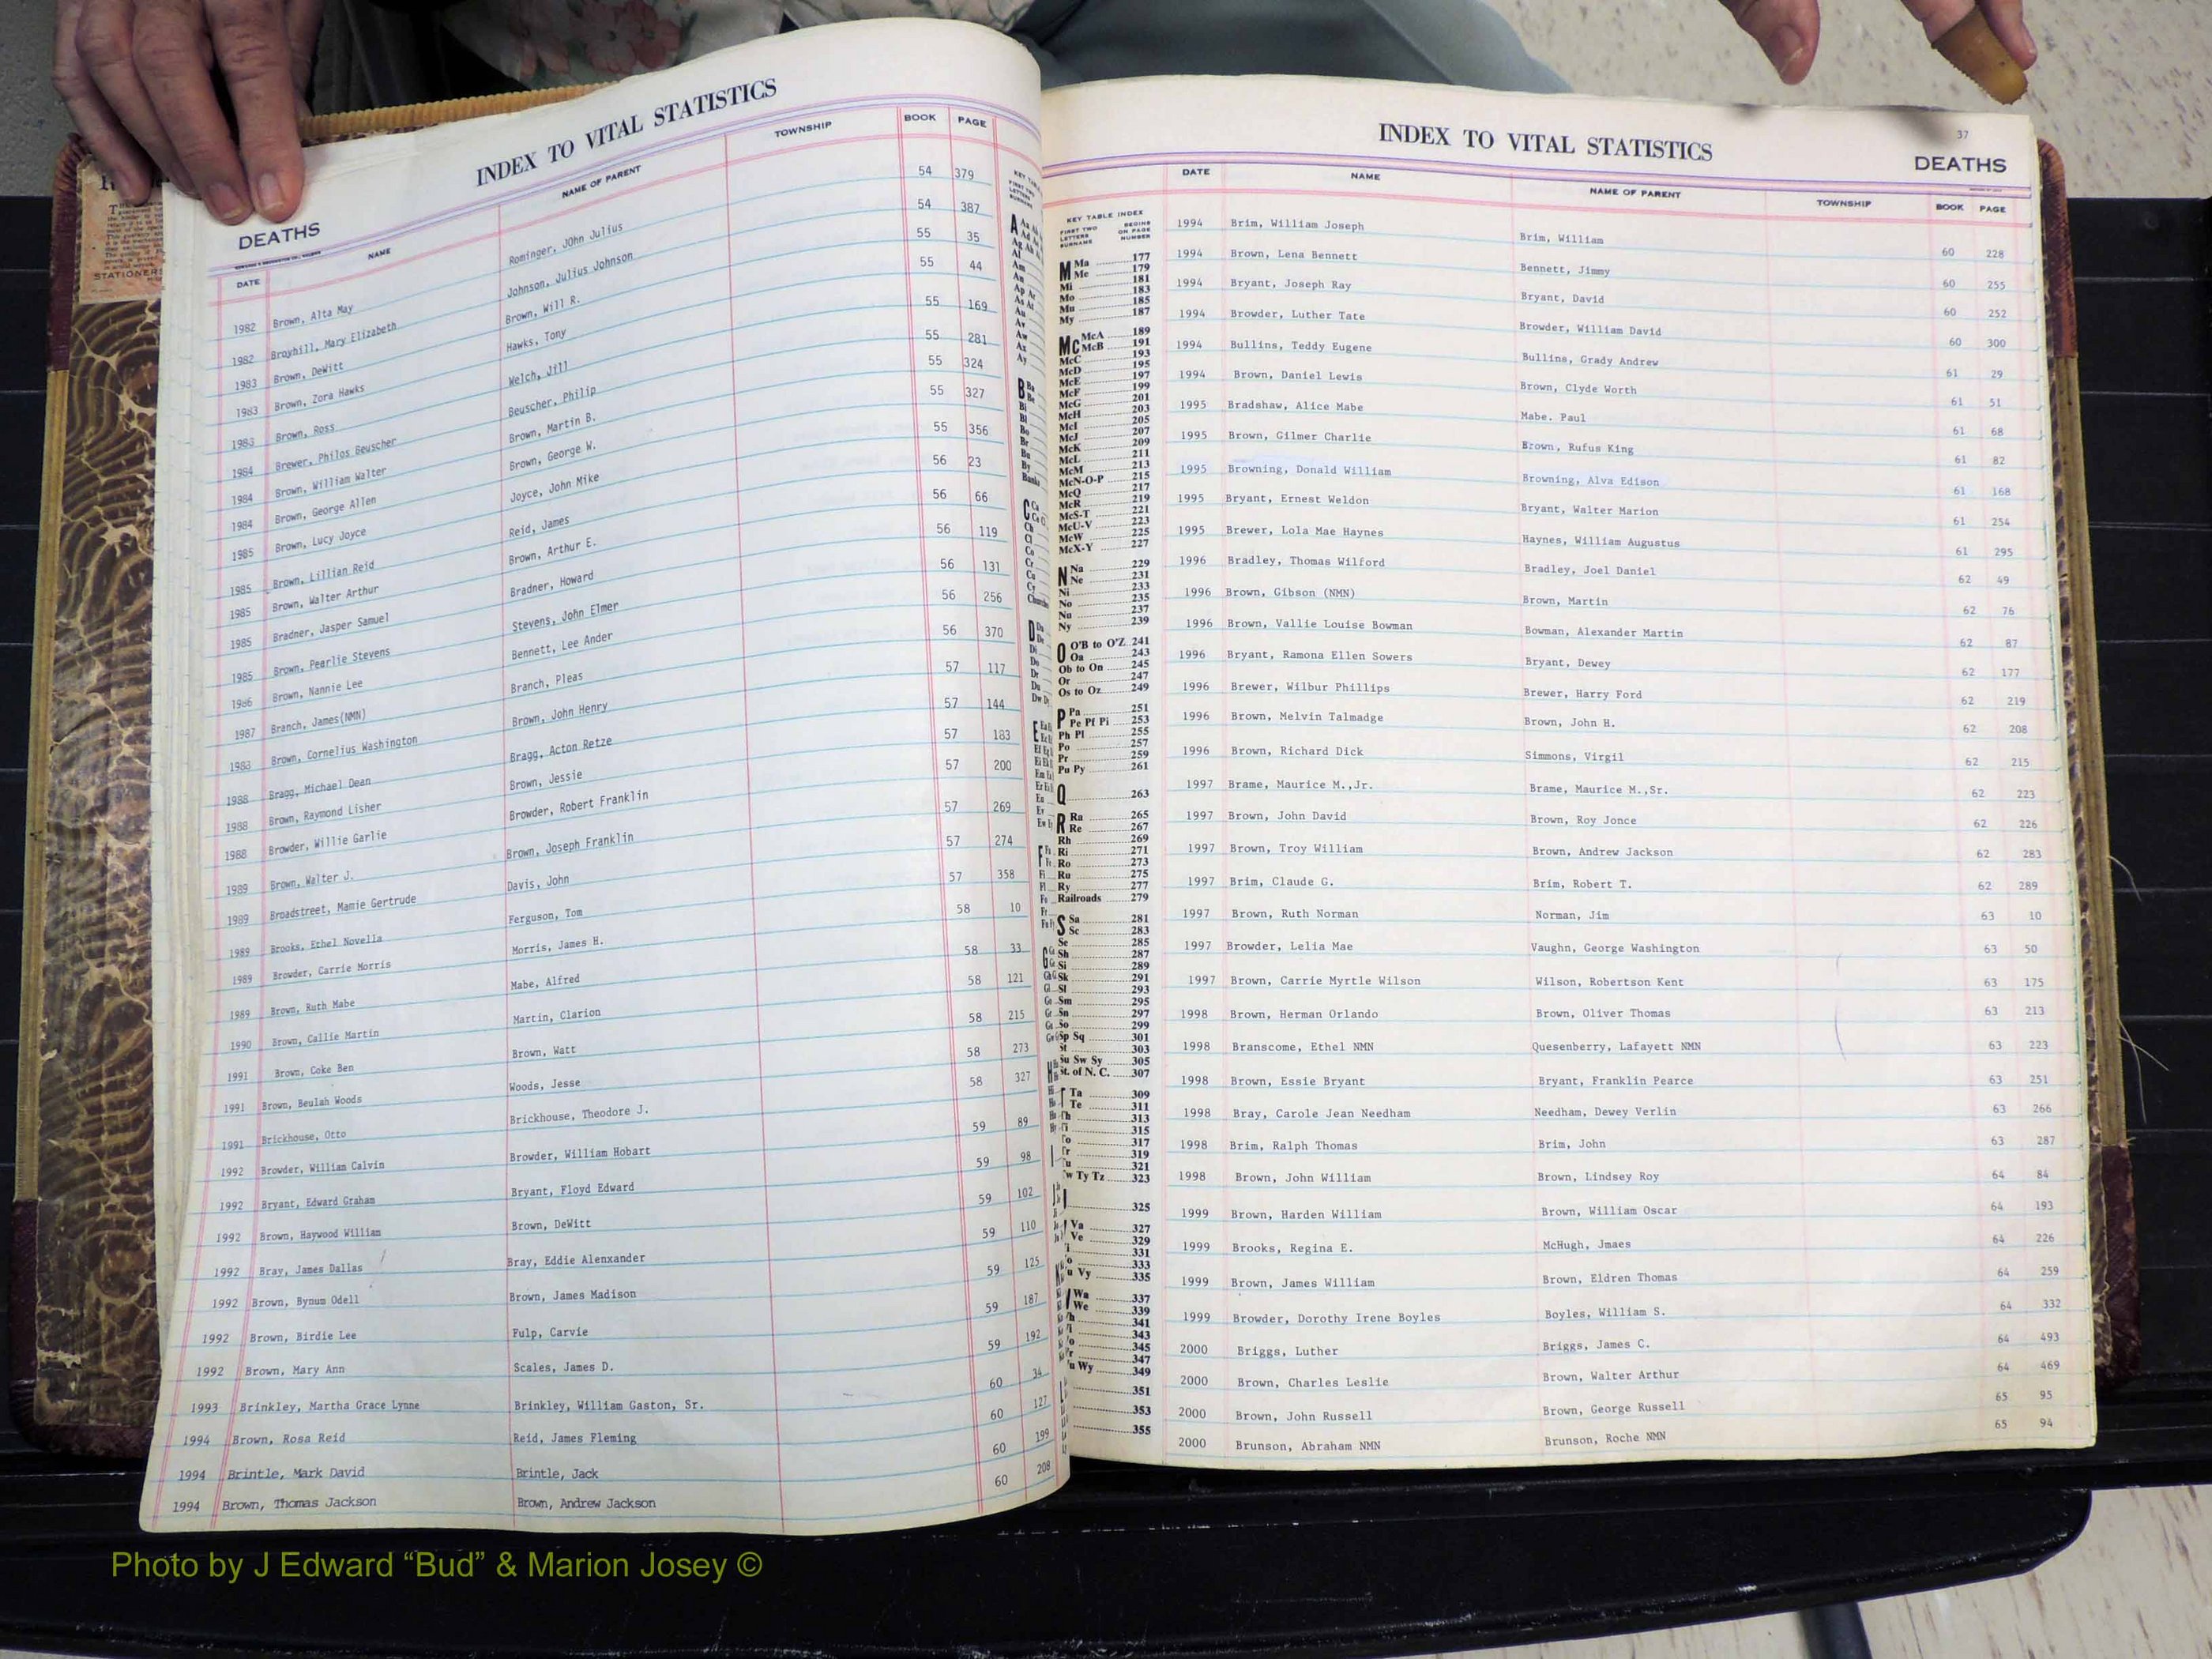 INDEX TO VITAL STATISTICS
DEATHS
DATE NAME NAME OF PARENT TOWNSHIP BOOK PAGE
1982 Brown, Alta May Rominger, JOhn Julius 54 379
1982 Broyhill, Mary Elizabeth Johnson, Julius Johnson 54 387
1983 Brown, DeWitt Brown, Will R. 55 35
1983 Brown, Zora Hawks Hawks, Tony 55 44
1983 Brown, Ross Welch, Jill 55 169
1984 Brewer, Philos Beuscher Beuscher, Philip 55 281
1984 Brown, William Walter Brown, Martin B. 55 324
1984 Brown, George Allen Brown, George W. 55 327
1985 Brown, Lucy Joyce Joyce, John Mike 55 356
1985 Brown, Lillian Reid Reid, James 56 23
1985 Brown, Walter Arthur Brown, Arthur E. 56 66
1985 Bradner, Jasper Samuel Bradner, Howard 56 119
1985 Brown, Pearlie Stevens Stevens, John Elmer 56 131
1986 Brown, Nannie Lee Bennett, Lee Ander 56 256
1987 Branch, James(NMN) Branch, Pleas 56 370
1988 Brown, Cornelius Washington Brown, John Henry 57 117
1988 Bragg, Michael Dean Bragg, Acton Retze 57 144
1988 Brown, Raymond Lisher Brown, Jessie 57 183
1988 Browder, Willie Garlie Browder, Robert Franklin 57 200
1989 Brown, Walter J. Brown, Joseph Franklin 57 269
1989 Broadstreet, Mamie Gertrude Davis, John 57 274
1989 Brooks, Ethel Novella Ferguson, Tom 57 358
1989 Browder, Carrie Morris Morris, James H. 58 10
1989 Brown, Ruth Mabe Mabe, Alfred 58 33
1990 Brown, Callie Martin Martin, Clarion 58 121
1991 Brown, Coke Ben Brown, Watt 58 215
1991 Brown, Beulah Woods Woods, Jesse 58 273
1991 Brickhouse, Otto Brickhouse, Theodore J. 58 327
1992 Browder, William Calvin Browder, William Hobart 59 89
1992 Bryant, Edward Graham Bryant, Floyd Edward 59 98
1992 Brown, Haywood William Brown, DeWitt 59 102
1992 Bray, James Dallas Bray, Eddie Alenxander 59 110
1992 Brown, Bynum Odell Brown, James Madison 59 125
1992 Brown, Birdie Lee Fulp, Carvie 59 187
1992 Brown, Mary Ann Scales, James D. 59 192
1993 Brinkley, Martha Grace Lynne Brinkley, William Gaston, Sr. 60 34
1994 Brown, Rosa Reid Reid, James Fleming 60 127
1994 Brintle, Mark David Brintle, Jack 60 199
1994 Brown, Thomas Jackson Brown, Andrew Jackson 60 208
KEY TABLE INDEX
FIRST TWO LETTERS SURNAME BEGINS ON PAGE NUMBER
M Ma 177
Me 179
Mi 181
Mo 183
Mu 185
My 187
Mc McA 189
McB 191
McC 193
McD 195
McE 197
McF 199
McG 201
McH 203
McI 205
McJ 207
McK 209
McL 211
McM 213
McN-O-P 215
McQ 217
McR 219
McS-T 221
McU-V 223
McW 225
McX-Y 227
N Na 229
Ne 231
Ni 233
No 235
Nu 237
Ny 239
O O'B to O'Z 241
Oa 243
Ob to On 245
Or 247
Os to Oz 249
P Pa 251
Pe Pf Pi 253
Ph Pl 255
Po 257
Pr 259
Pu Py 261
Q 263
R Ra 265
Re 267
Rh 269
Ri 271
Ro 273
Ru 275
Ry 277
Railroads 279
S Sa 281
Sc 283
Se 285
Sh 287
Si 289
Sk 291
Sl 293
Sm 295
Sn 297
So 299
Sp Sq 301
St 303
Su Sw Sy 305
St. of N. C. 307
Ta 309
Te 311
Th 313
Ti 315
To 317
Tr 319
Tu 321
Tw Ty Tz 323
325
Va 327
Ve 329
331
333
335
Wa 337
We 339
341
343
345
347
349
351
353
355
37
INDEX TO VITAL STATISTICS
DEATHS
DATE NAME NAME OF PARENT TOWNSHIP BOOK PAGE
1994 Brim, William Joseph Brim, William 60 228
1994 Brown, Lena Bennett Bennett, Jimmy 60 255
1994 Bryant, Joseph Ray Bryant, David 60 252
1994 Browder, Luther Tate Browder, William David 60 300
1994 Bullins, Teddy Eugene Bullins, Grady Andrew 61 29
1994 Brown, Daniel Lewis Brown, Clyde Worth 61 51
1995 Bradshaw, Alice Mabe Mabe. Paul 61 68
1995 Brown, Gilmer Charlie Brown, Rufus King 61 82
1995 Browning, Donald William Browning, Alva Edison 61 168
1995 Bryant, Ernest Weldon Bryant, Walter Marion 61 254
1995 Brewer, Lola Mae Haynes Haynes, William Augustus 61 295
1996 Bradley, Thomas Wilford Bradley, Joel Daniel 62 49
1996 Brown, Gibson (NMN) Brown, Martin 62 76
1996 Brown, Vallie Louise Bowman Bowman, Alexander Martin 62 87
1996 Bryant, Ramona Ellen Sowers Bryant, Dewey 62 177
1996 Brewer, Wilbur Phillips Brewer, Harry Ford 62 219
1996 Brown, Melvin Talmadge Brown, John H. 62 208
1996 Brown, Richard Dick Simmons, Virgil 62 215
1997 Brame, Maurice M.,Jr. Brame, Maurice M.,Sr. 62 223
1997 Brown, John David Brown, Roy Jonce 62 226
1997 Brown, Troy William Brown, Andrew Jackson 62 283
1997 Brim, Claude G. Brim, Robert T. 62 289
1997 Brown, Ruth Norman Norman, Jim 63 10
1997 Browder, Lelia Mae Vaughn, George Washington 63 50
1997 Brown, Carrie Myrtle Wilson Wilson, Robertson Kent 63 175
1998 Brown, Herman Orlando Brown, Oliver Thomas 63 213
1998 Branscome, Ethel NMN Quesenberry, Lafayett NMN 63 223
1998 Brown, Essie Bryant Bryant, Franklin Pearce 63 251
1998 Bray, Carole Jean Needham Needham, Dewey Verlin 63 266
1998 Brim, Ralph Thomas Brim, John 63 287
1998 Brown, John William Brown, Lindsey Roy 64 84
1999 Brown, Harden William Brown, William Oscar 64 193
1999 Brooks, Regina E. McHugh, Jmaes 64 226
1999 Brown, James William Brown, Eldren Thomas 64 259
1999 Browder, Dorothy Irene Boyles Boyles, William S. 64 332
2000 Briggs, Luther Briggs, James C. 64 493
2000 Brown, Charles Leslie Brown, Walter Arthur 64 469
2000 Brown, John Russell Brown, George Russell 65 95
2000 Brunson, Abraham NMN Brunson, Roche NMN 65 94
Photo by J Edward “Bud” & Marion Josey ©